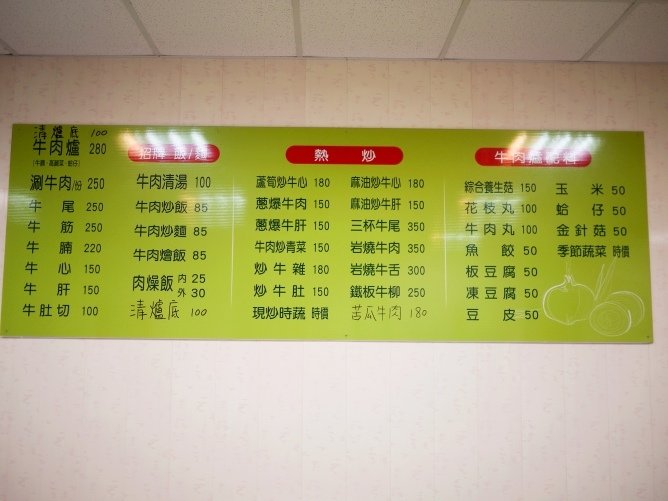 清爐底 100
牛肉爐 280
(牛腩、高麗菜、蛤仔)
涮牛肉/份 250
牛尾 250
牛筋 250
牛腩 220
牛心 150
牛肝 150
牛肚切 100
招牌 飯/麵
牛肉清湯 100
牛肉炒飯 85
牛肉炒麵 85
牛肉燴飯 85
肉燥飯 內 25
外 30
清爐底 100
熱炒
蘆筍炒牛心 180
蔥爆牛肉 150
蔥爆牛肝 150
牛肉炒青菜 150
炒牛雜 180
炒牛肚 150
現炒時蔬 時價
麻油炒牛心 180
麻油炒牛肝 150
三杯牛尾 350
岩燒牛肉 350
岩燒牛舌 300
鐵板牛柳 250
苦瓜牛肉 180
牛肉爐配料
綜合養生菇 150
花枝丸 100
牛肉丸 100
魚餃 50
板豆腐 50
凍豆腐 50
豆皮 50
玉米 50
蛤仔 50
金針菇 50
季節蔬菜 時價